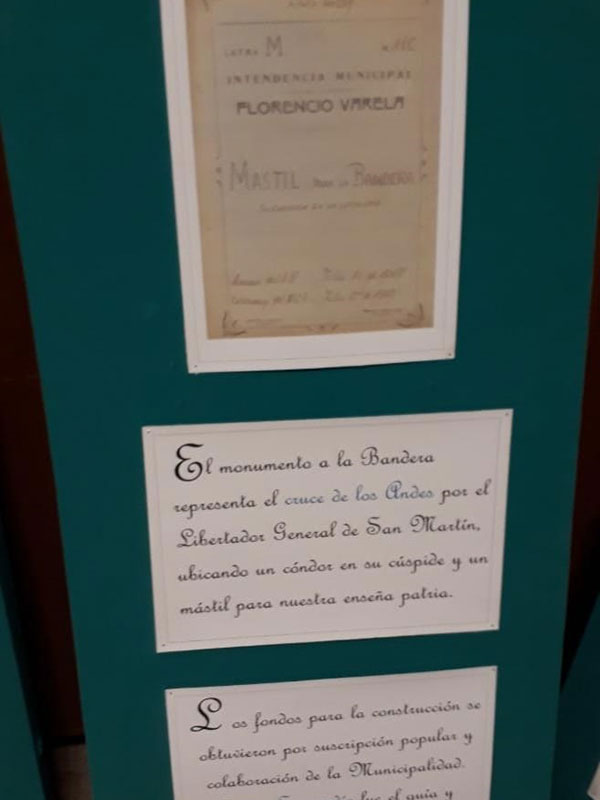 LETRA M
INTENDENCIA MUNICIPAL
FLORENCIO VARELA
MASTIL PARA LA BANDERA
El monumento a la Bandera
representa el cruce de los Andes por el
Libertador General de San Martín,
ubicando un cóndor en su cúspide y un
mástil para nuestra enseña patria.
Los fondos para la construcción se
obtuvieron por suscripción popular y
colaboración de la Municipalidad.
fue el guía y